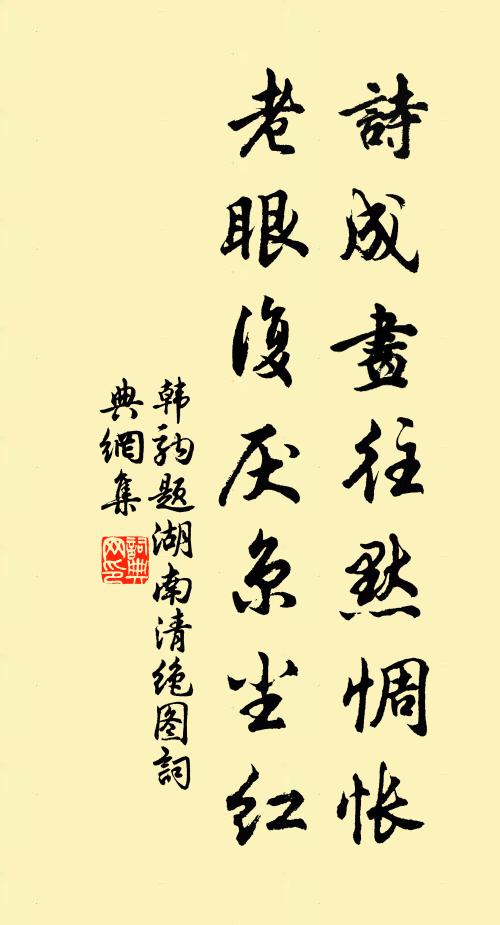 詩成畫往默惆怅
老眼復厌京尘红
韩驹题湖南清绝图詞
典網集
詞典網印